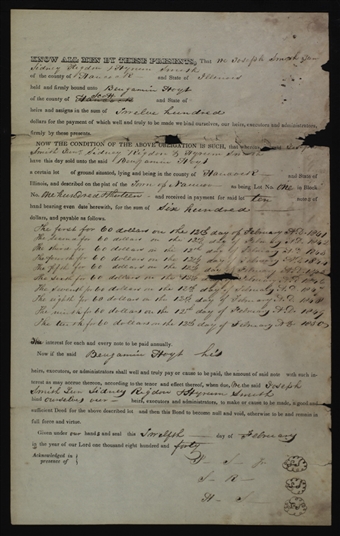 KNOW ALL MEN BY THESE PRESENTS, That We Joseph Smith Jun
Sidney Rigdon & Hyrum Smith
of the county of Hancock and State of Illinois
held and firmly bound unto Benjamin Hoyt
of the county of Hancock and State of
heirs and assigns in the sum of Twelve hundred
dollars for the payment of which well and truly to be made we bind ourselves, our heirs, executors and administrators,
firmly by these presents.
NOW THE CONDITION OF THE ABOVE OBLIGATION IS SUCH, that whereas
Smith Jun Sidney Rigdon & Hyrum Smith
have this day sold unto the said Benjamin Hoyt
a certain lot of ground situated, lying and being in county of Hancock and State of
Illinois, and described on the plot of the Town of Nauvoo as being Lot No. One in Block
No. One hundred thirteen and received in payment for said lot ten notes of
hand bearing even date herewith, for the sum of Six hundred
dollars, and payable as follows.
The first for 60 dollars on the 12th day of February A.D. 1841
The second for 60 dollars on the 12th day of February A.D.
The third for 60 dollars on the 12th day of February A.D.
The fourth for 60 dollars on the 12th day of February A.D.
The fifth for 60 dollars on the 12th day of February A.D.
The sixth for 60 dollars on the 12th day of February A.D.
The seventh for 60 dollars on the 12th day of February A.D.
The eighth for 60 dollars on the 12th day of February A.D.
The ninth for 60 dollars on the 12th day of February A.D. 1849
The tenth for 60 dollars on the 12th day of February A.D. 1850
The interest for each and every note to be paid annually.
Now if the said Benjamin Hoyt his
heirs, executors, or administrators shall well and truly pay or cause to be paid, the amount of said note with each in-
terest as may accrue thereon, according to the tenor and effect thereof, when due, the said Joseph
Smith Jun Sidney Rigdon & Hyrum Smith
bind ourselves our heirs, executors and administrators, to make or cause to be made, a good and
sufficient Deed for the above described lot and then this Bond to become null and void, otherwise to be and remain in
full force and virtue.
Given under our hands and seal this Twelfth day of February
in the year of our Lord one thousand eight hundred and forty
Acknowledged in
presence of
J- S- J-
S- R-
H- S-